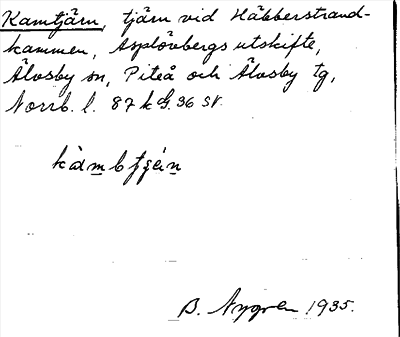 Kamtjärn, tjärn vid Häbberstrand-
kammen, Asplövbergs utskifte,
Älvsby sn, Piteå och Älvsby tg,
Norrb. l. 87 k G. 36 SV.
B. Nygren 1935.